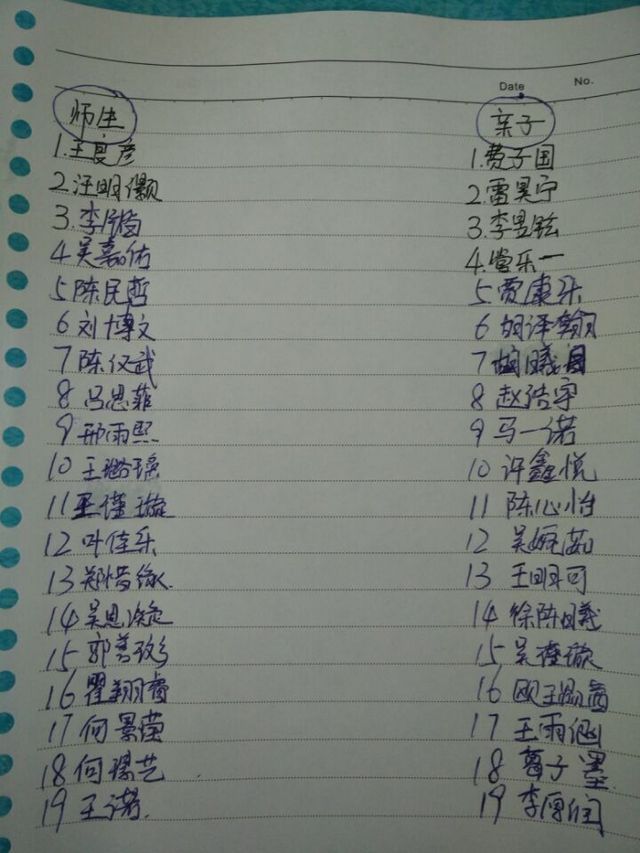 Date No.
师生 亲子
1.王良彦 1.费子国
2.汪明灏 2.雷昊宁
3.李 3.李昱铉
4.吴嘉佑 4.常乐一
5 陈民哲 5 贾康乐
6 刘博文 6 胡泽翰
7 陈仪武 7 曦
8 吕思菲 8 赵浩宇
9 邢雨熙 9 马一诺
10 王璐瑶 10 许鑫悦
11 王瑾璇 11 陈心怡
12 叶佳乐 12 吴婉茹
13 郑惜 13 王明可
14 吴思 14 徐陈曦
15 郭 15 吴 璇
16 瞿翔睿 16 欧王
17 何景荣 17 王雨涵
18 何璟艺 18 葛子墨
19 王诺. 19 李厚润